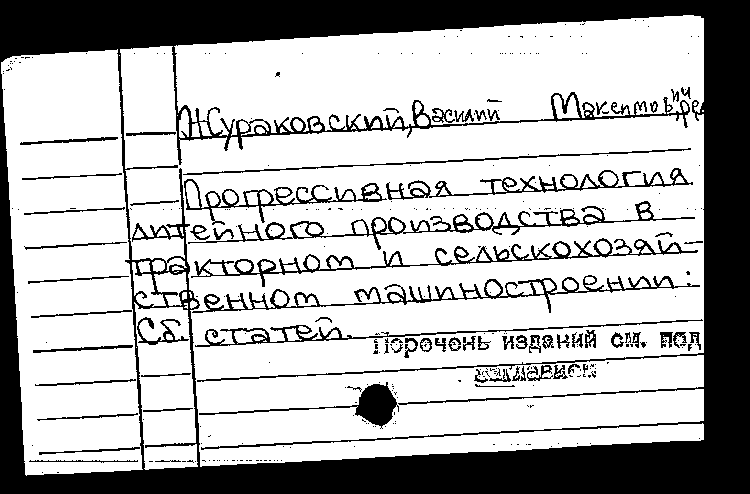 Жураковский, Василий Максимович, ред
Прогрессивная технология
литейного производства в
тракторном и сельскохозяй-
ственном машиностроении:
Сб. статей.
Перечень изданий см. под
заглавием